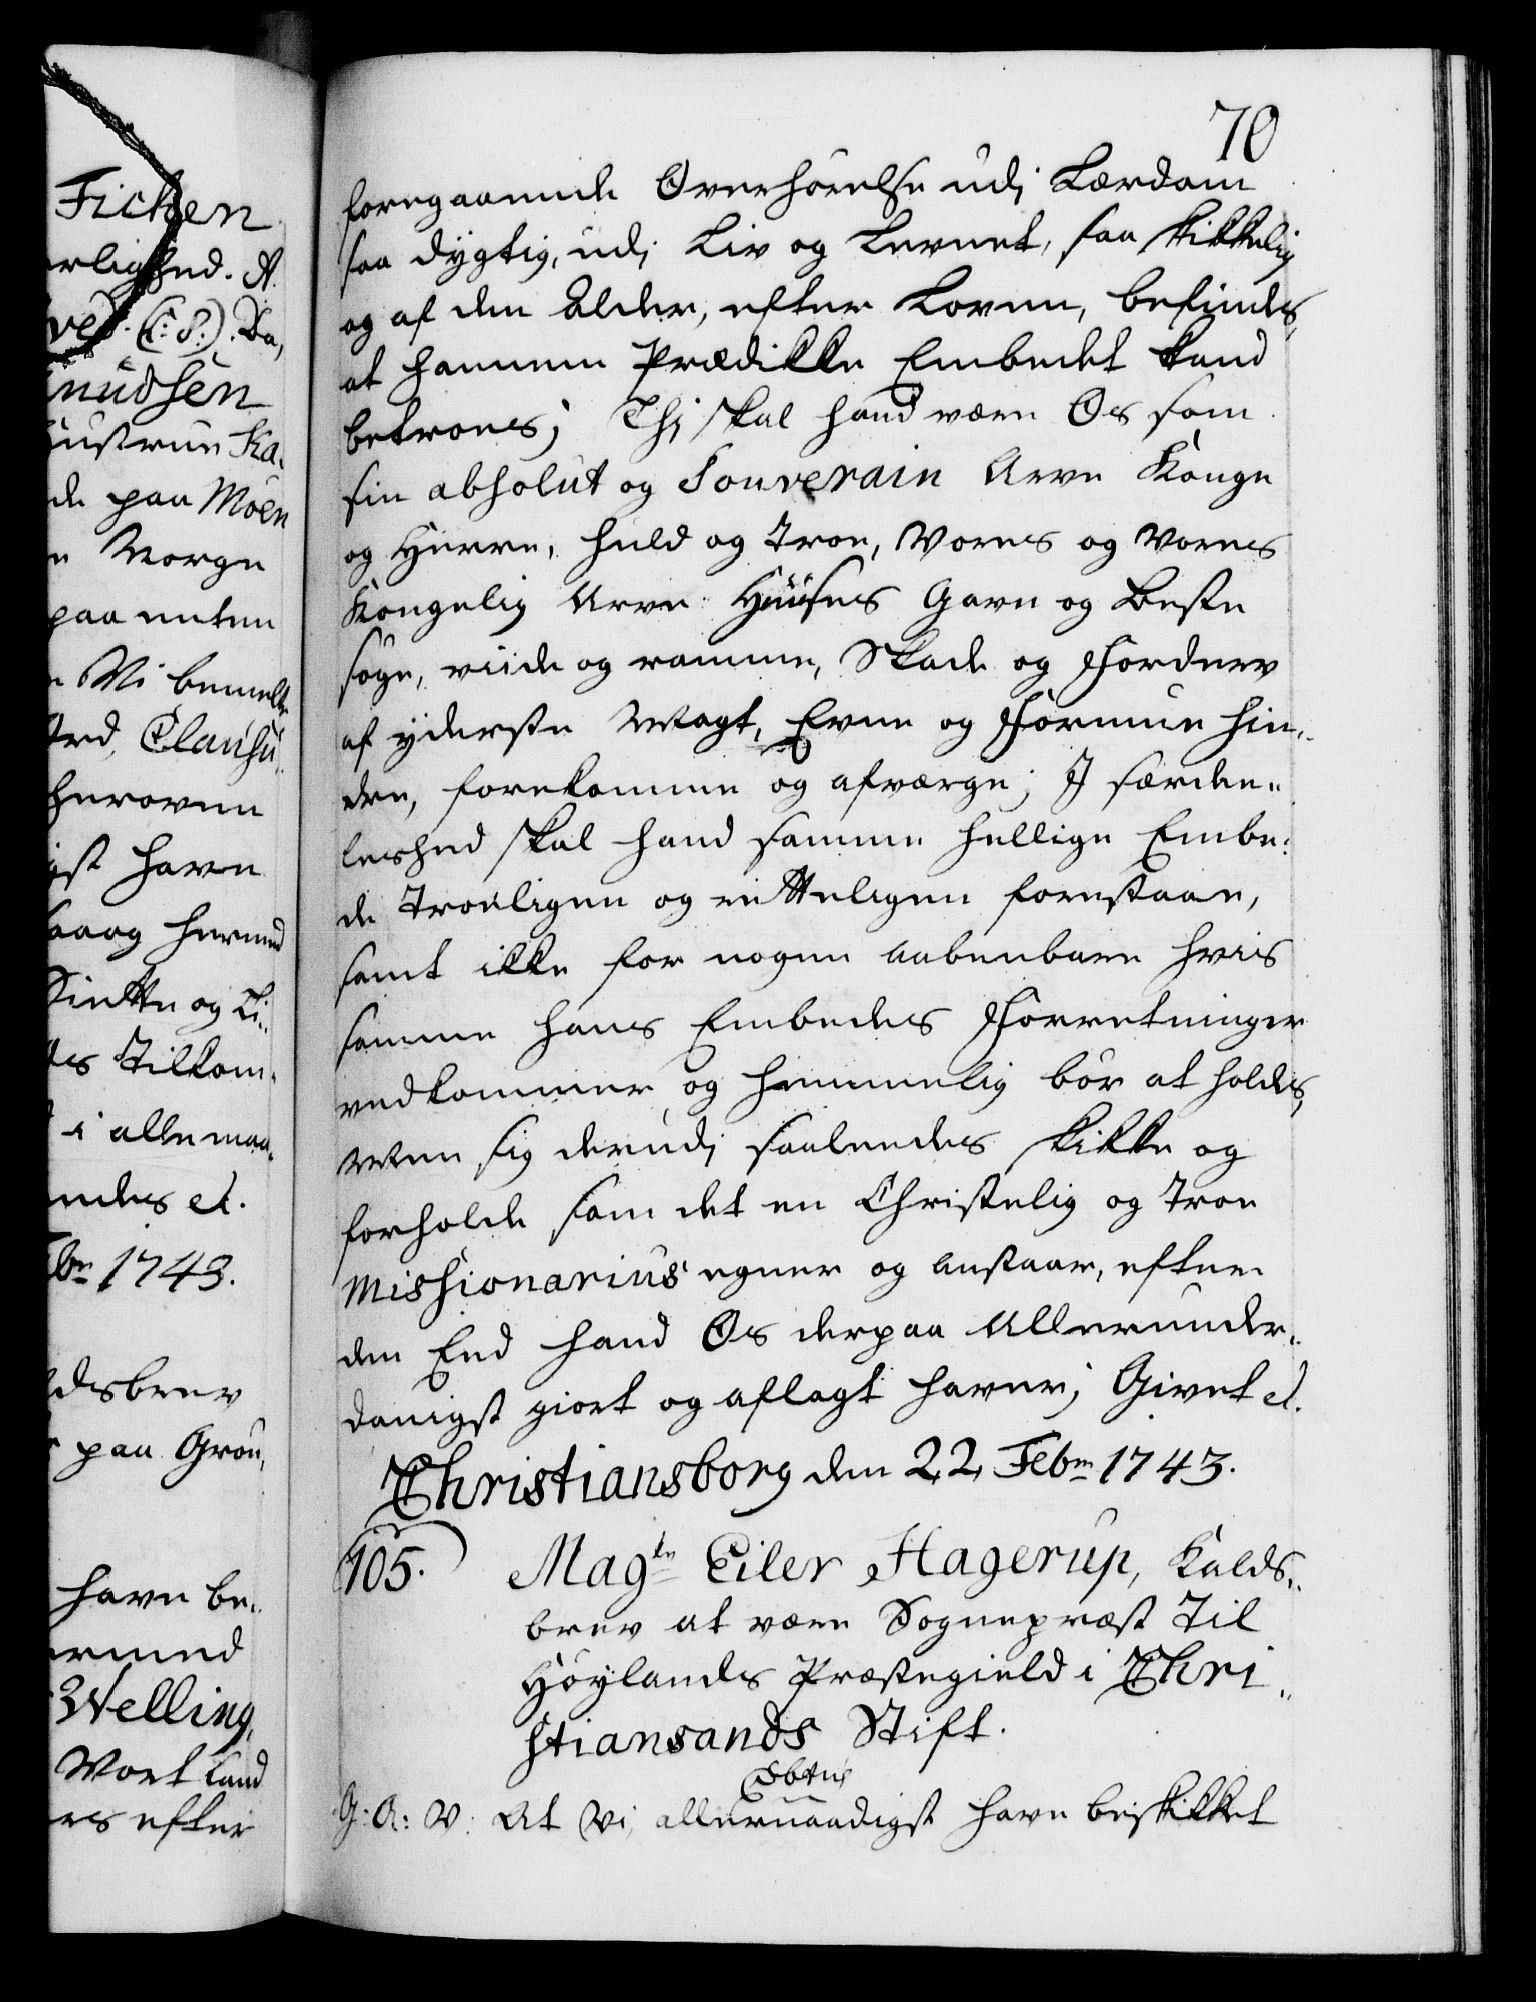 Ficksen
erlighed. A.
ved. (:S:). Da,
nudsen
Hustrue Ka,
de paa Möen
e Norge
paa enten
e Vi bemelte
ord, Clausu,,
herover
igst have
haag hermed
Siette og Ti,,
des Tilkom,
i alle maa,
endes et.
Febr 1743.
ldsbrev
r paa Grön,
have be,,
ermed
Welling,
Vort Land
es efter
70
foregaaende Overhörelse udj Lærdom
saa dygtig, udj Liv og Levnet, saa skikkelig
og af den Alder, efter Loven, befindes,
at hannem Prædikke Embedet kand
betroes; Thj skal hand være Os som
sin absolut og Souverain Arve Konge
og Herre, huld og Troe, Vores og Vores
Kongelig Arve Huuses Gavn og Beste
söge, viide og ramme, Skade og Forderv
af yderste Magt, Evne og Formue hin,,
dre, forekomme og afværge; J særde,,
leshed skal hand samme hellige Embe,
de Troeligen og retteligen forestaae,
samt ikke for nogen aabenbare hvis
samme hans Embedes Forretninger
vedkommer og hemmelig bör at holdes,
Men sig derudj saaleedes skikke og
forholde som det en Christelig og Troe
Missionarius egner og anstaar, efter
den Eed hand Os derpaa Allerunder,,
danigst giort og aflagt haver; Givet et.
Christiansborg den 22 Febr 1743.
105. Magtr Eiler Hagerup, Kalds,,
brev at være Sognepræst Til
Höylands Præstegield i Chri,,
stiansands Stift.
G: A: V: At Vi, allernaadigst have beskikket